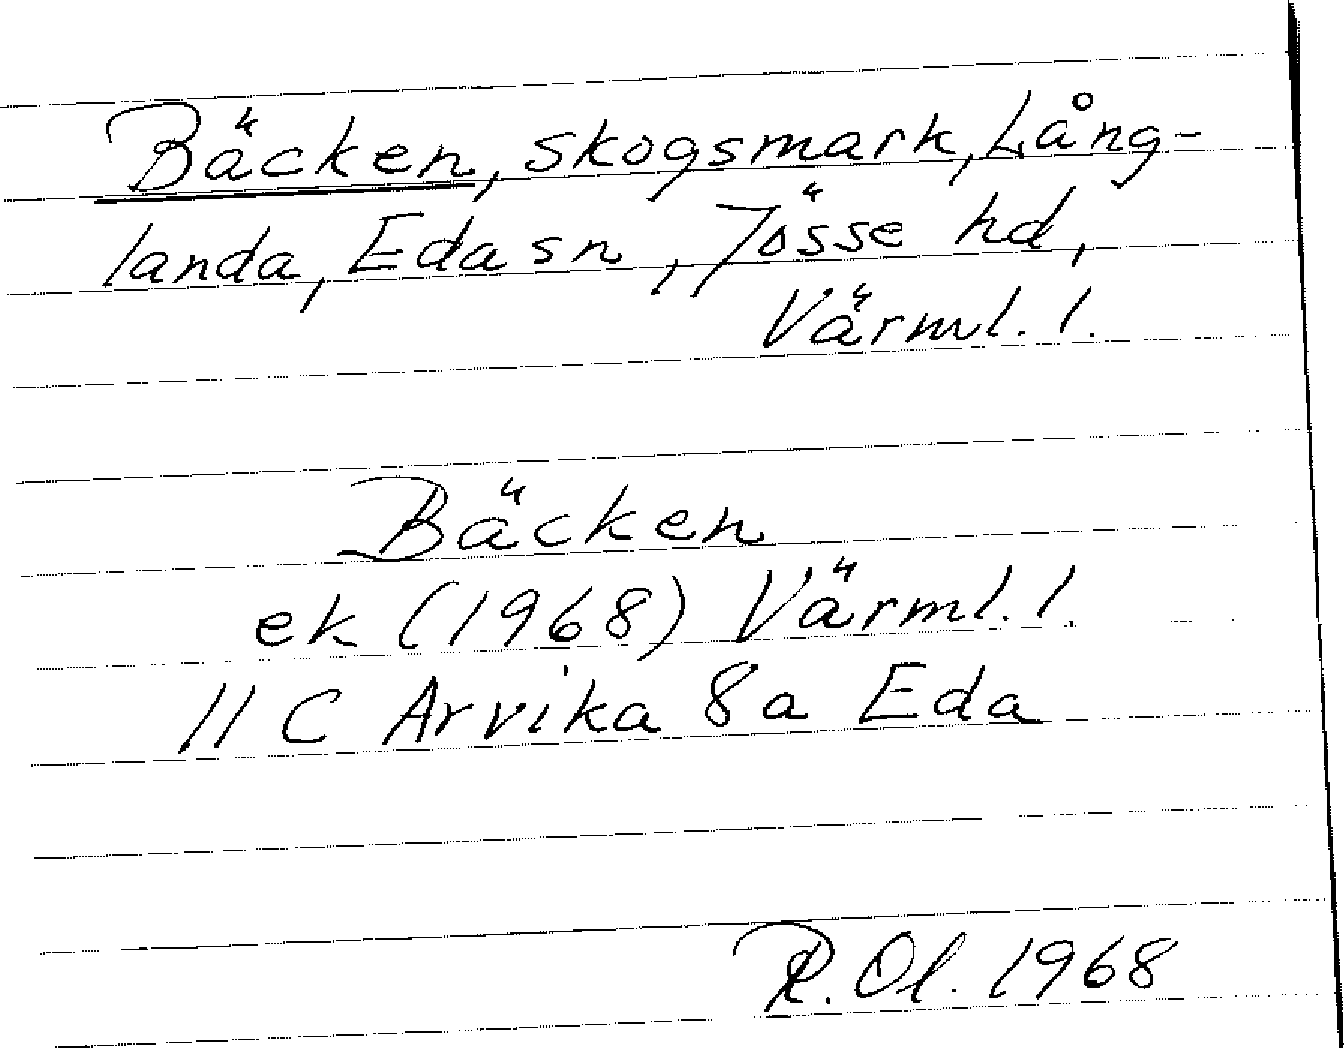 Bäcken, skogsmark, Lång-
landa, Eda sn, Jösse hd,
Värml. l.
Bäcken
ek (1968) Värml. l.
11 C Arvika 8a Eda
R. Ol. 1968